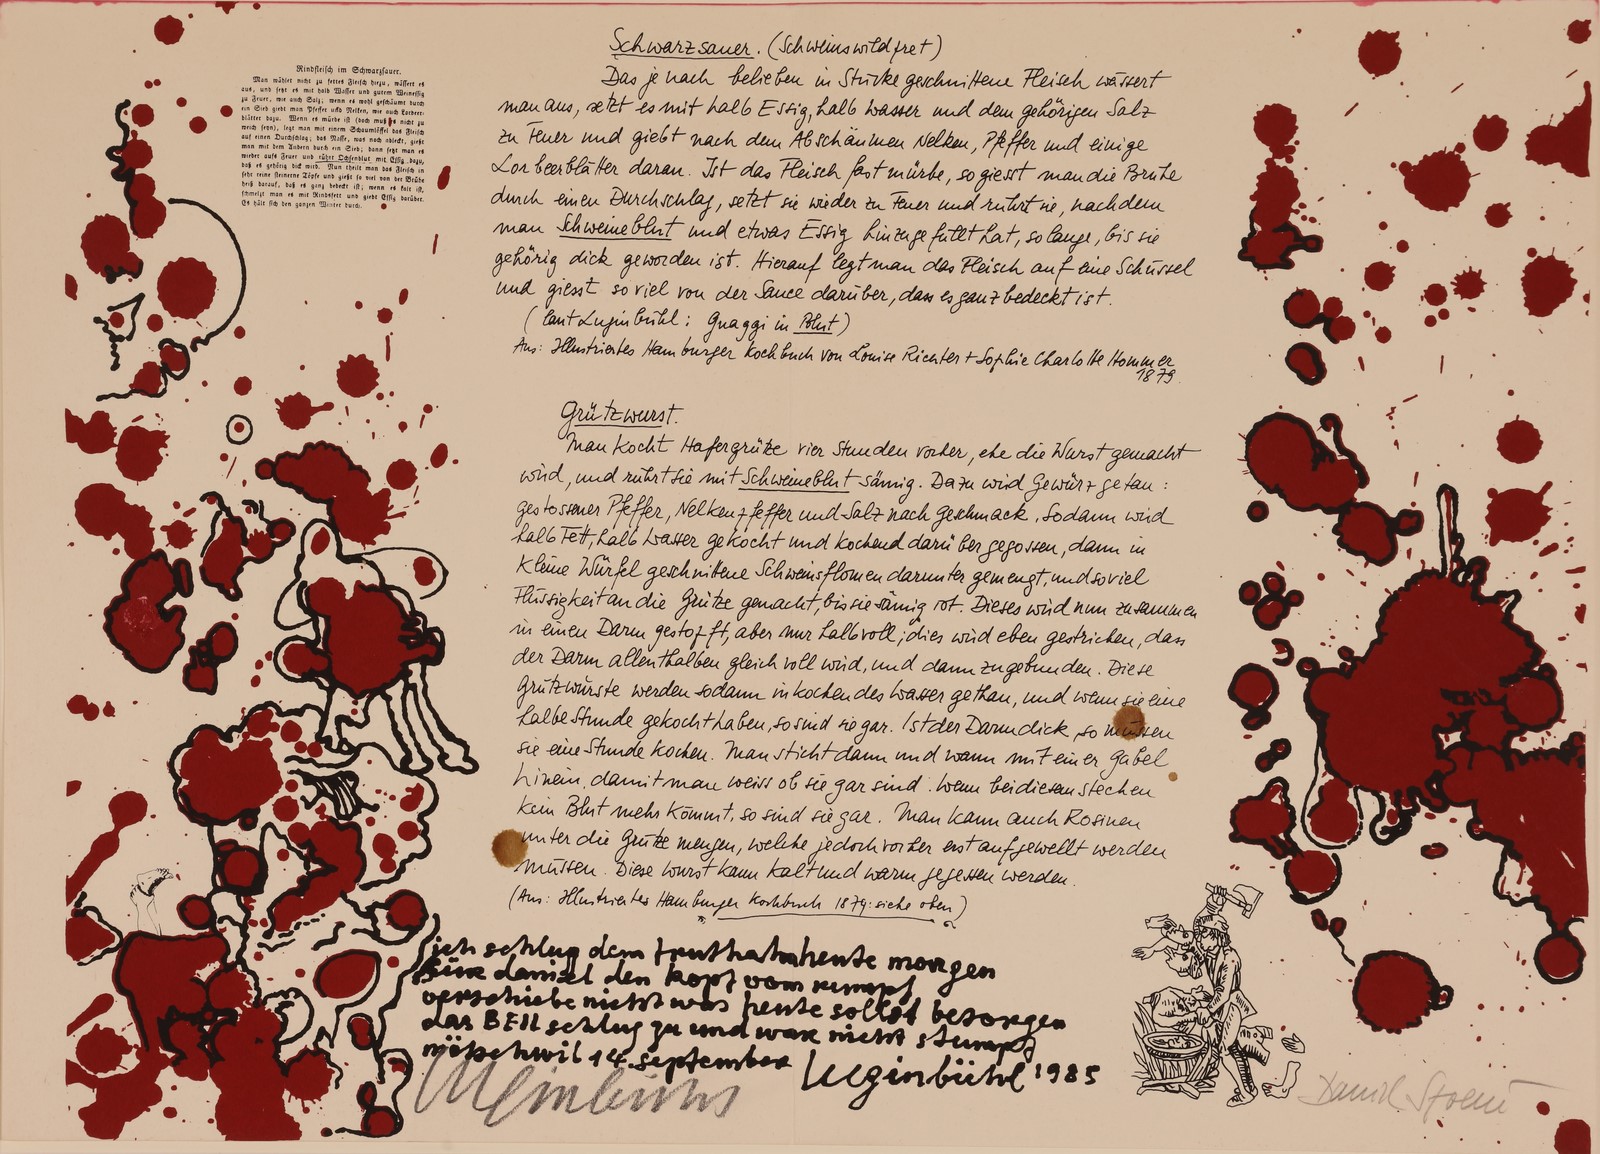 Rindfleisch im Schwarzsauer.
Man wählet nicht zu fettes Fleisch hiezu, wässert es
aus, und setzt es mit halb Wasser und gutem Weinessig
zu Feuer, wie auch Salz; wenn es wohl geschäumt durch
ein Sieb giebt man Pfeffer und Nelken, wie auch Lorbeer-
blätter dazu. Wenn es mürbe ist (doch muß es nicht zu
weich seyn), legt man mit einem Schaumlöffel das Fleisch
auf einen Durchschlag; das Nasse, was noch abläuft, gießt
man mit dem Andern durch ein Sieb; dann setzt man es
wieder aufs Feuer und rührt Ochsenblut mit Essig dazu,
daß es gehörig dick wird. Nun theilt man das Fleisch in
sehr reine steinerne Töpfe und gießt so viel von der Brühe
heiß darauf, daß es ganz bedeckt ist; wenn es kalt ist,
schmelzt man es mit Rindsfett und giebt Essig darüber.
Es hält sich den ganzen Winter durch.
Schwarzsauer. (Schweinswildpret)
Das je nach belieben in Stücke geschnittene Fleisch wässert
man aus, setzt es mit halb Essig, halb Wasser und dem gehörigen Salz
zu Feuer und giebt nach dem Abschäumen Nelken, Pfeffer und einige
Lorbeerblätter daran. Ist das Fleisch fast mürbe, so giesst man die Brühe
durch einen Durchschlag, setzt sie wieder zu Feuer und rührt sie, nachdem
man Schweineblut und etwas Essig hinzugefüllt hat, so lange, bis sie
gehörig dick geworden ist. Hierauf legt man das Fleisch auf eine Schüssel
und giesst so viel von der Sauce darüber, dass es ganz bedeckt ist.
(laut Luginbühl: Gnaggi in Blut)
Aus: Illustriertes Hamburger Kochbuch von Louise Richter + Sophie Charlotte Hommer
1879.
Grützwurst.
Man kocht Hafergrütze vier Stunden vorher, ehe die Wurst gemacht
wird, und rührt sie mit Schweineblut sämig. Dazu wird Gewürz getan:
gestossener Pfeffer, Nelkenpfeffer und Salz nach Geschmack. Sodann wird
halb Fett, halb Wasser gekocht und kochend darüber gegossen, dann in
kleine Würfel geschnittene Schweinsflomen darunter gemengt, und soviel
Flüssigkeit an die Grütze gemacht, bis sie sämig ist. Dieses wird nun zusammen
in einen Darm gestopft, aber nur halbvoll; dies wird eben gestrichen, dass
der Darm allenthalben gleich voll wird, und dann zugebunden. Diese
Grützwürste werden sodann in kochendes Wasser gethan, und wenn sie eine
halbe Stunde gekocht haben, so sind sie gar. Ist der Darm dick, so müssen
sie eine Stunde kochen. Man sticht dann und wann mit einer Gabel
hinein, damit man weiss ob sie gar sind. Wenn bei diesem stechen
kein Blut mehr kömmt, so sind sie gar. Man kann auch Rosinen
unter die Grütze mengen, welche jedoch vorher erst aufgewellt werden
müssen. Diese Wurst kann kalt und warm gegessen werden.
(Aus: Illustriertes Hamburger Kochbuch 1879: siehe oben)
ich schlug dem truthahn heute morgen
für daniel den kopf vom rumpf
verschiebe nicht was heute sollst besorgen
das BEIl schlug zu und war nicht stumpf
mötschwil 14. september Luginbühl 1985
Luginbühl
Daniel Spoerri